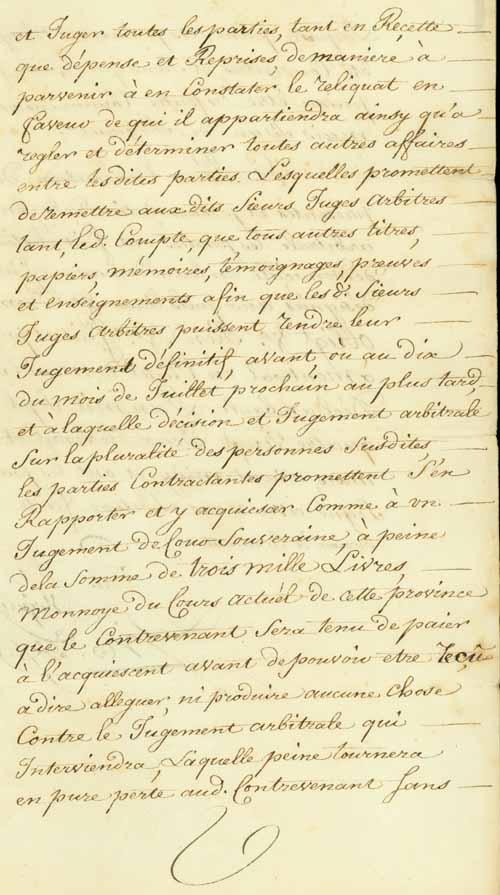 et Juger toutes les parties, tant en Reçette
que dépense et Reprises, de maniere à
parvenir à en Constater le reliquat en
faveur de qui il appartiendra ainsy qu'a
regler et déterminer toutes autres affaires
entre lesdites parties. Lesquelles promettent
de remettre aux dits Sieurs Juges Arbitres
tant, led. Compte, que, tous autres titres,
papiers, mémoires, témoignages, preuves
et enseignements afin que les d. Sieurs
Juges Arbitres puissent rendre leur
Jugement définitif, avant où au dix
du mois de Juillet prochain au plus tard,
et à laquelle décision et Jugement arbitrale
Sur la pluralité des personnes Susdites
les parties Contractantes promettent S'en
Rapporter et y acquiescer Comme à un
Jugement de Cour Souveraine, à peine
de la Somme de trois mille Livres,
Monnoye du Cours actuél de cette province
que le Contrevenant Sera tenu de paier
à l'acquiescent avant de pouvoir etre reçû
a dire alleguer, ni produire aucune chose
Contre le Jugement arbitrale qui
Interviendra, Laquelle peine tournera
en pure perte aud. Contrevenant Sans